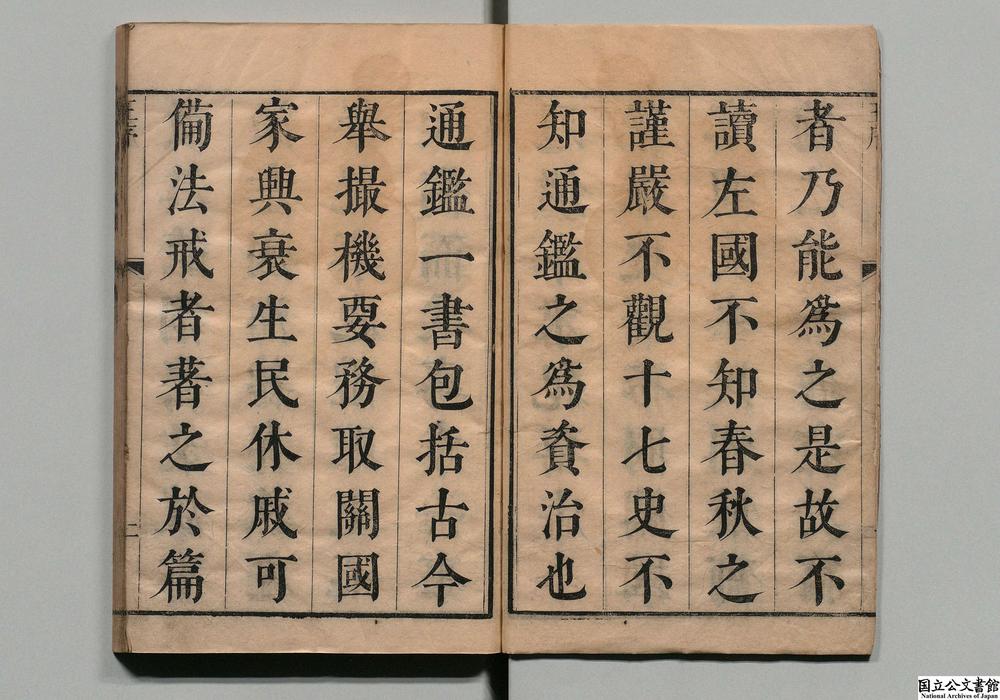 者乃能爲之是故不
讀左國不知春秋之
謹嚴不觀十七史不
知通鑑之爲資治也
通鑑一書包括古今
舉撮機要務取關國
家興衰生民休戚可
備法戒者著之於篇
二
国立公文書館
National Archives of Japan